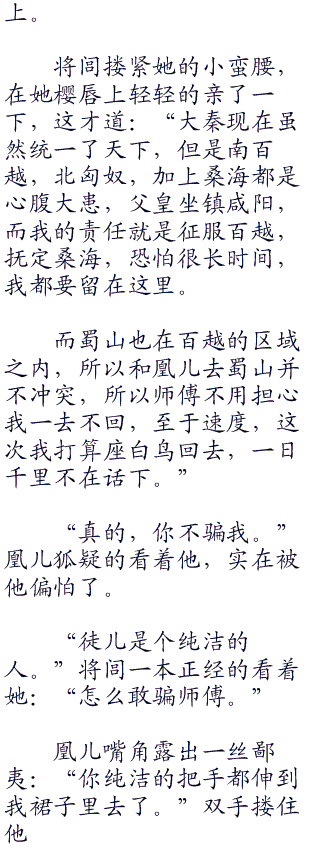 上。
将闾搂紧她的小蛮腰，
在她樱唇上轻轻的亲了一
下，这才道：“大秦现在虽
然统一了天下，但是南百
越，北匈奴，加上桑海都是
心腹大患，父皇坐镇咸阳，
而我的责任就是征服百越，
抚定桑海，恐怕很长时间，
我都要留在这里。
而蜀山也在百越的区域
之内，所以和凰儿去蜀山并
不冲突，所以师傅不用担心
我一去不回，至于速度，这
次我打算座白鸟回去，一日
千里不在话下。”
“真的，你不骗我。”
凰儿狐疑的看着他，实在被
他偏怕了。
“徒儿是个纯洁的
人。”将闾一本正经的看着
她：“怎么敢骗师傅。”
凰儿嘴角露出一丝鄙
夷：“你纯洁的把手都伸到
我裙子里去了。”双手搂住
他